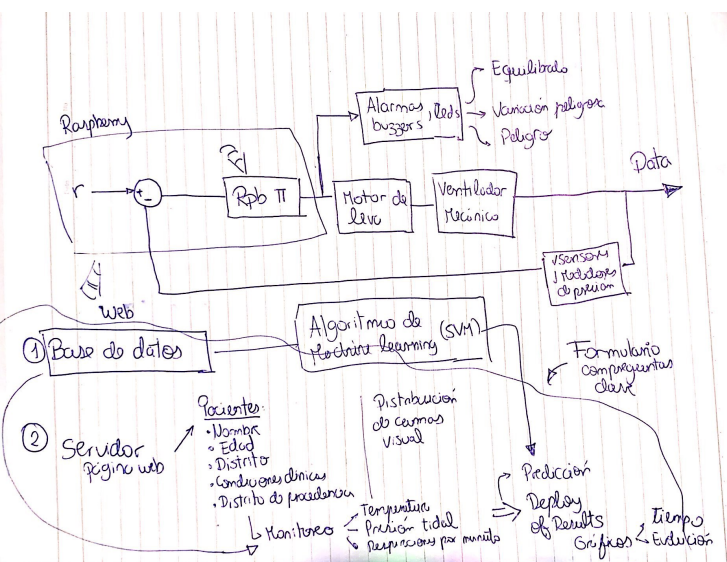 Equilibrado
Alarmas, leds
buzzers
Variación peligrosa
Peligro
Raspberry
Data
r
+
-
Rpb π
Motor de
leva
Ventilador
Mecánico
sensores
medidores
de presion
Web
① Base de datos
Algoritmo de
Machine learning (SVM)
Formulario
con preguntas
clave
② Servidor
página web
Pacientes:
• Nombre
• Edad
• Distrito
• Condiciones clínicas
• Distrito de procedencia
Distribución
de camas
visual
Monitoreo
Temperatura
Presión tidal
Respiraciones por minuto
Predicción
Deploy
of Results
Gráficos
Tiempo
Evolución